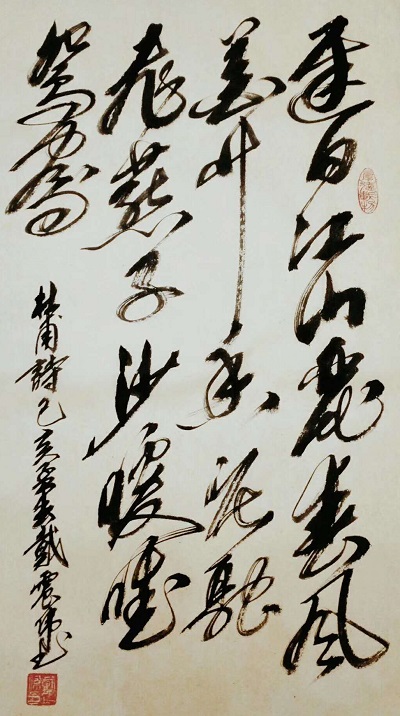 遲日江山麗春風
花艸香泥融
飛燕子沙暖睡
鴛鴦
杜甫詩己亥戴震書